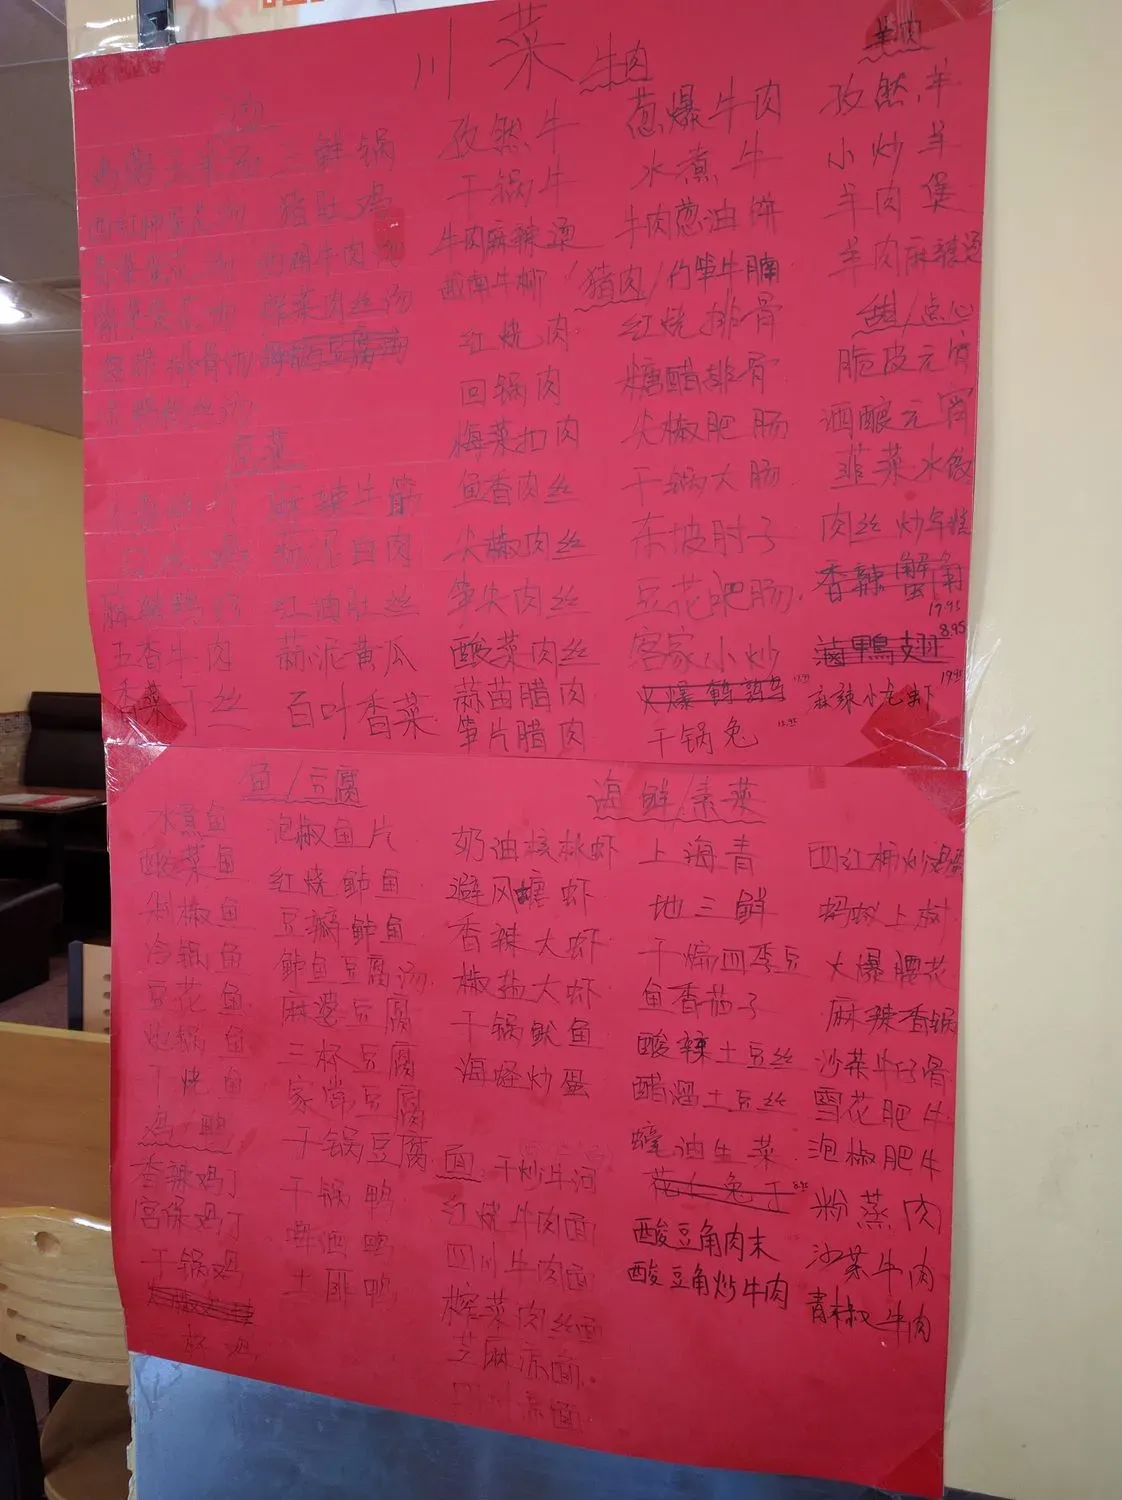 川菜
汤
三鲜锅
猪肚鸡
牛肉
榨菜肉丝汤
凉菜
麻辣牛筋
蒜泥白肉
红油肚丝
五香牛肉
蒜泥黄瓜
香菜干丝
百叶香菜
牛肉
孜然牛
葱爆牛肉
干锅牛
水煮牛
牛肉麻辣烫
牛肉葱油饼
越南牛柳
竹笋牛腩
猪肉/
红烧肉
红烧排骨
回锅肉
糖醋排骨
梅菜扣肉
尖椒肥肠
鱼香肉丝
干锅大肠
尖椒肉丝
东坡肘子
笋尖肉丝
豆花肥肠
酸菜肉丝
客家小炒
蒜苗腊肉
火爆鹌鹑
笋片腊肉
干锅兔
羊肉
孜然羊
小炒羊
羊肉煲
羊肉麻辣烫
甜/点心
脆皮元宵
酒酿元宵
韭菜水饺
肉丝炒年糕
香辣蟹角
17.95
滷鴨翅 8.95
麻辣小龙虾 19.95
鱼/豆腐
水煮鱼
泡椒鱼片
酸菜鱼
红烧鲈鱼
剁椒鱼
豆瓣鲈鱼
冷锅鱼
鲈鱼豆腐汤
豆花鱼
麻婆豆腐
火锅鱼
三杯豆腐
干烧鱼
家常豆腐
干锅豆腐
鸡/鸭
香辣鸡丁
干锅鸭
宫保鸡丁
啤酒鸭
干锅鸡
土匪鸭
海鲜/素菜
奶油核桃虾
避风塘虾
香辣大虾
椒盐大虾
干锅鱿鱼
海蛏炒蛋
面
干炒牛河
红烧牛肉面
四川牛肉面
榨菜肉丝面
芝麻凉面
四川凉面
上海青
地三鲜
干煸四季豆
鱼香茄子
酸辣土豆丝
醋溜土豆丝
蠔油生菜
花仁兔丁 8.95
酸豆角肉末
酸豆角炒牛肉
西红柿炒鸡蛋
蚂蚁上树
火爆腰花
麻辣香锅
沙茶牛仔骨
雪花肥牛
泡椒肥牛
粉蒸肉
沙茶牛肉
青椒牛肉